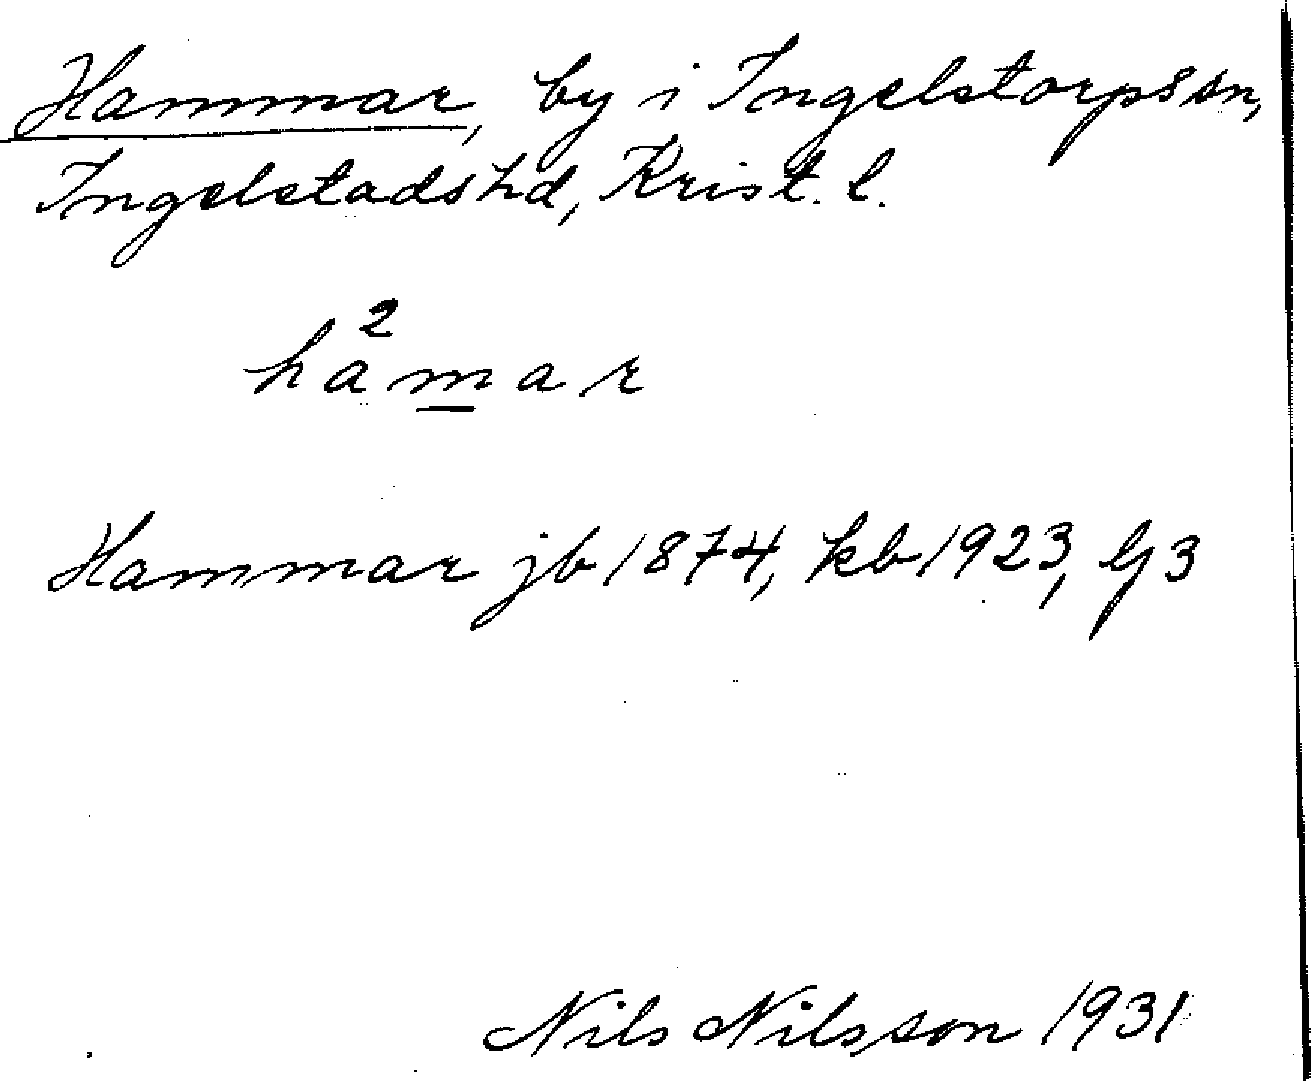 Hammar, by i Ingelstorps sn,
Ingelstads hd, Krist. l.
2
hamar
Hammar jb 1874, kb 1923, Gg 3
Nils Nilsson 1931